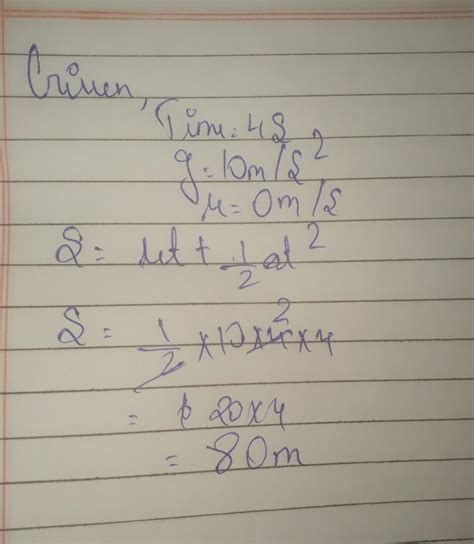 Given,
Time = 4S
g = 10m/s²
u = 0m/s
S = ut + 1/2 at²
S = 1/2 × 10 × 4 2 × 4
= 20×4
= 80m